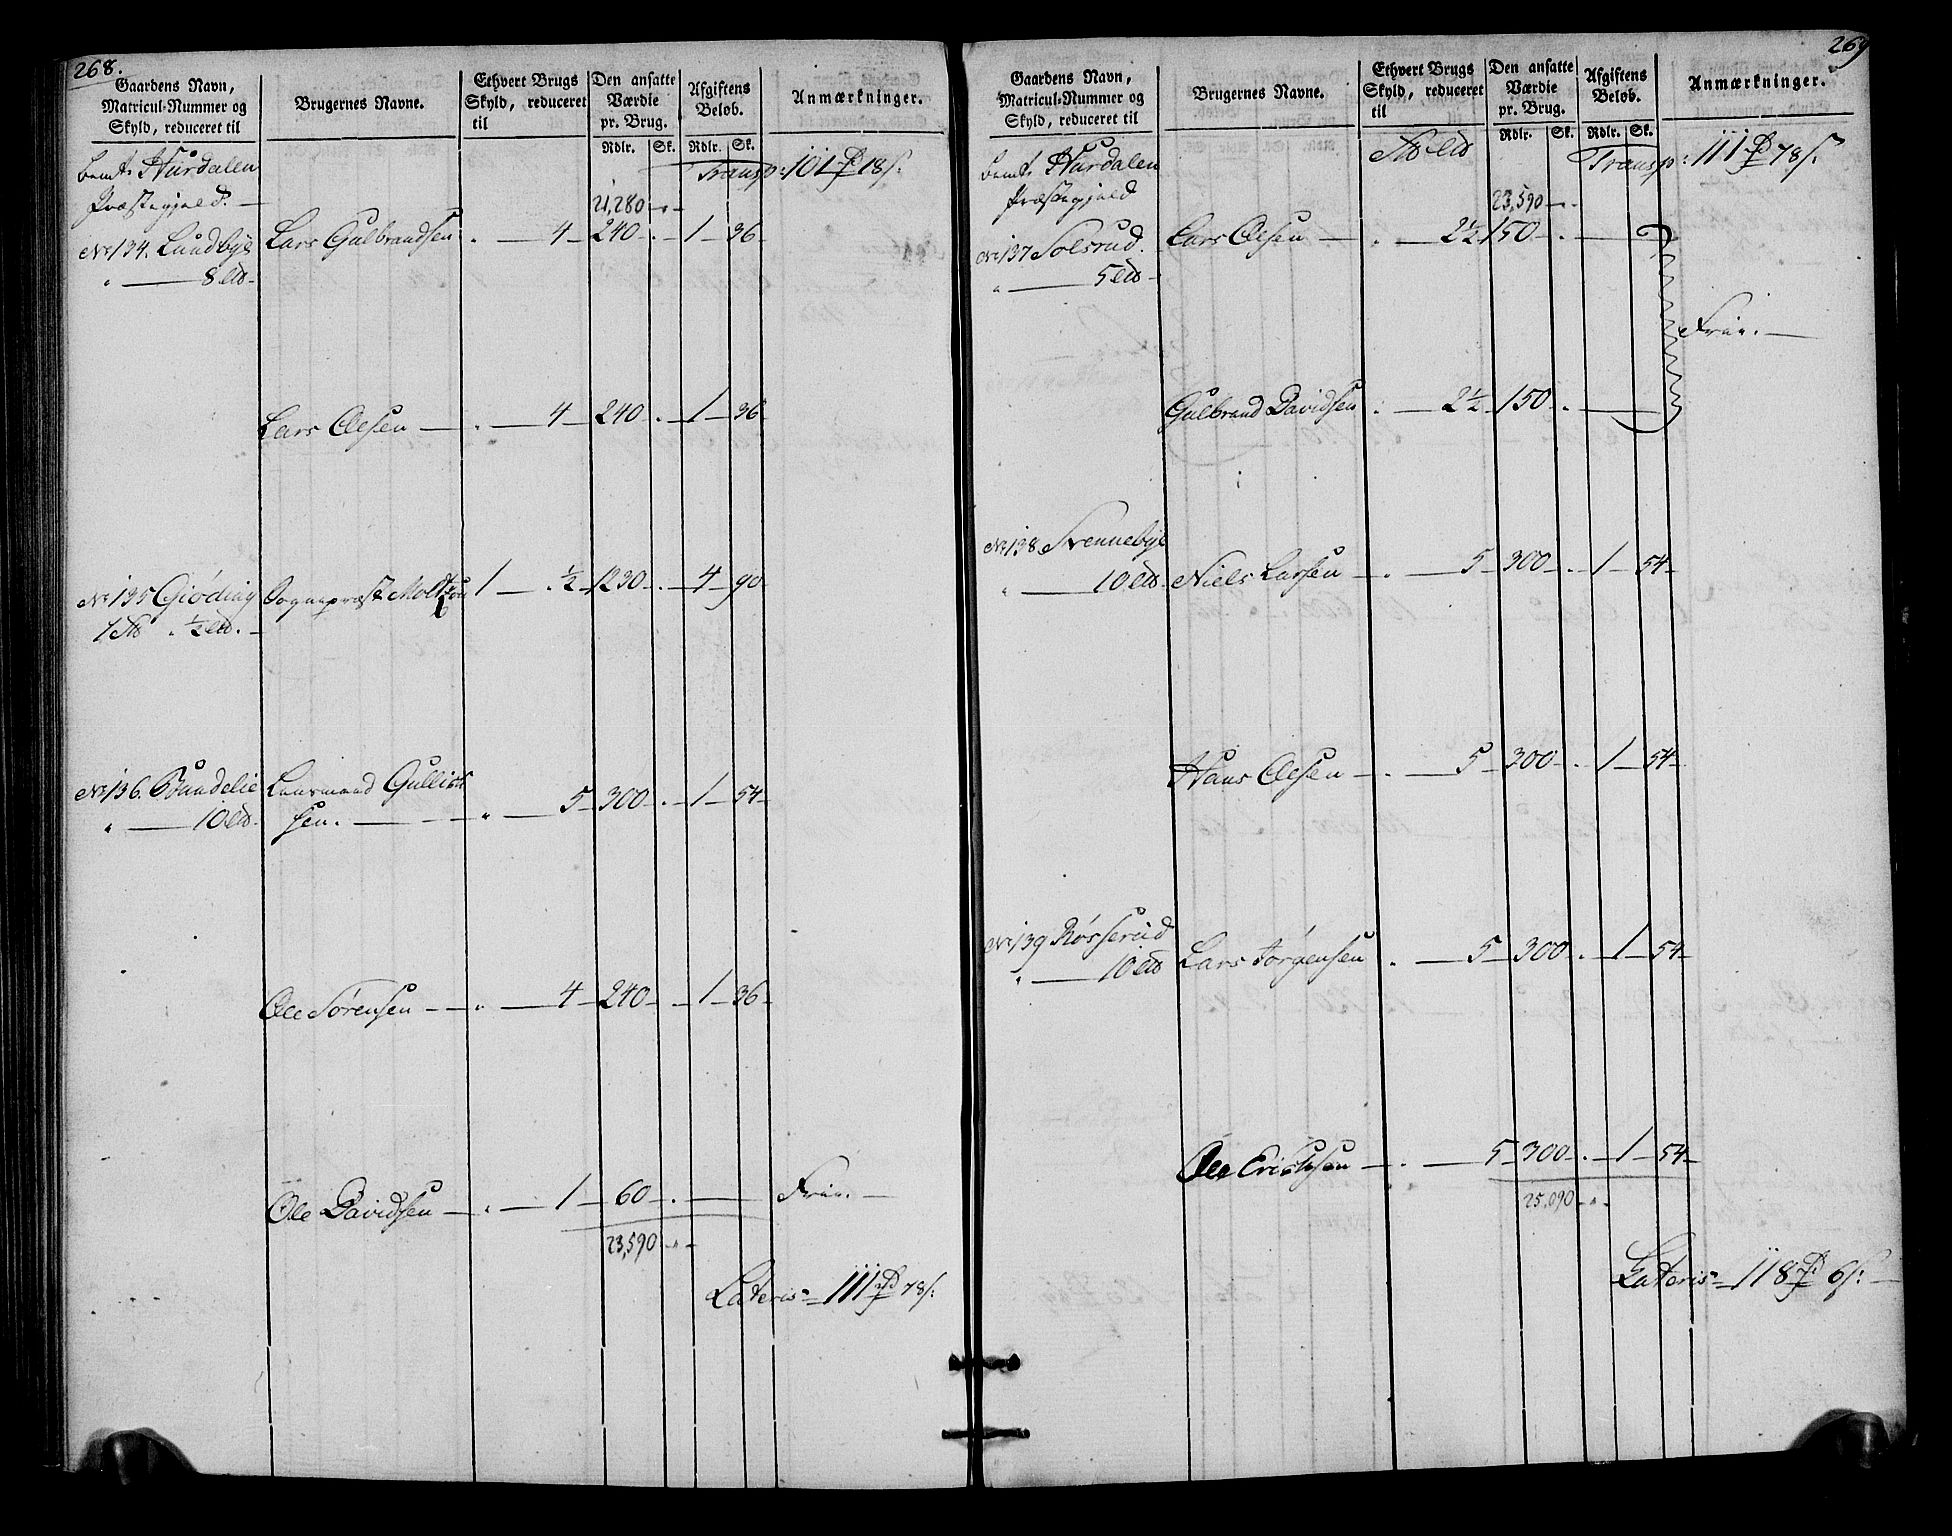 268.
Gaardens Navn, Matricul-Nummer og Skyld, reduceret til | Brugernes Navne. | Ethvert Brugs Skyld, reduceret til | Den ansatte Værdie pr. Brug. | Afgiftens Beløb. | Anmærkninger.
Rdlr. Sk. Rdlr. Sk.
Hurdalen Transp: 101 18 s.
Præstegjeld. — 21,280
No 134. Lundbye Lars Gulbrandsen 4 240 . 1 36
" 8 ld
Lars Olesen . 4 240 . 1 36
No 135 Giøding Sognepræst 1 . ½ 1230 . 4 90
1 . ½
No 136. Lensmand 5 300 . 1 54
" 10 sen.
Ole Sørensen " 4 240 . 1 36
Ole Davidsen . 1 60 . — Frie. —
23,590
Lateris 111 78 s:
269
Gaardens Navn, Matricul-Nummer og Skyld, reduceret til | Brugernes Navne. | Ethvert Brugs Skyld, reduceret til | Den ansatte Værdie pr. Brug. | Afgiftens Beløb. | Anmærkninger.
Rdlr. Sk. Rdlr. Sk.
Hurdalen Transp: 111 78 s.
Præstegjeld 23,590
No 137 Solsrud. Lars Olesen . 2½ 150 . —
" 5
Frie. —
Gulbrand Davidsen . 2½ 150 . —
No 138
" 10 Niels Larsen . 5 300 . 1 54
Hans Olesen . 5 300 . 1 54
No 139 Røsserud
" 10 Lars Jørgensen . 5 300 . 1 54
Ole Erichsen . 5 300 . 1 54
25,090
Lateris 118 6 s: